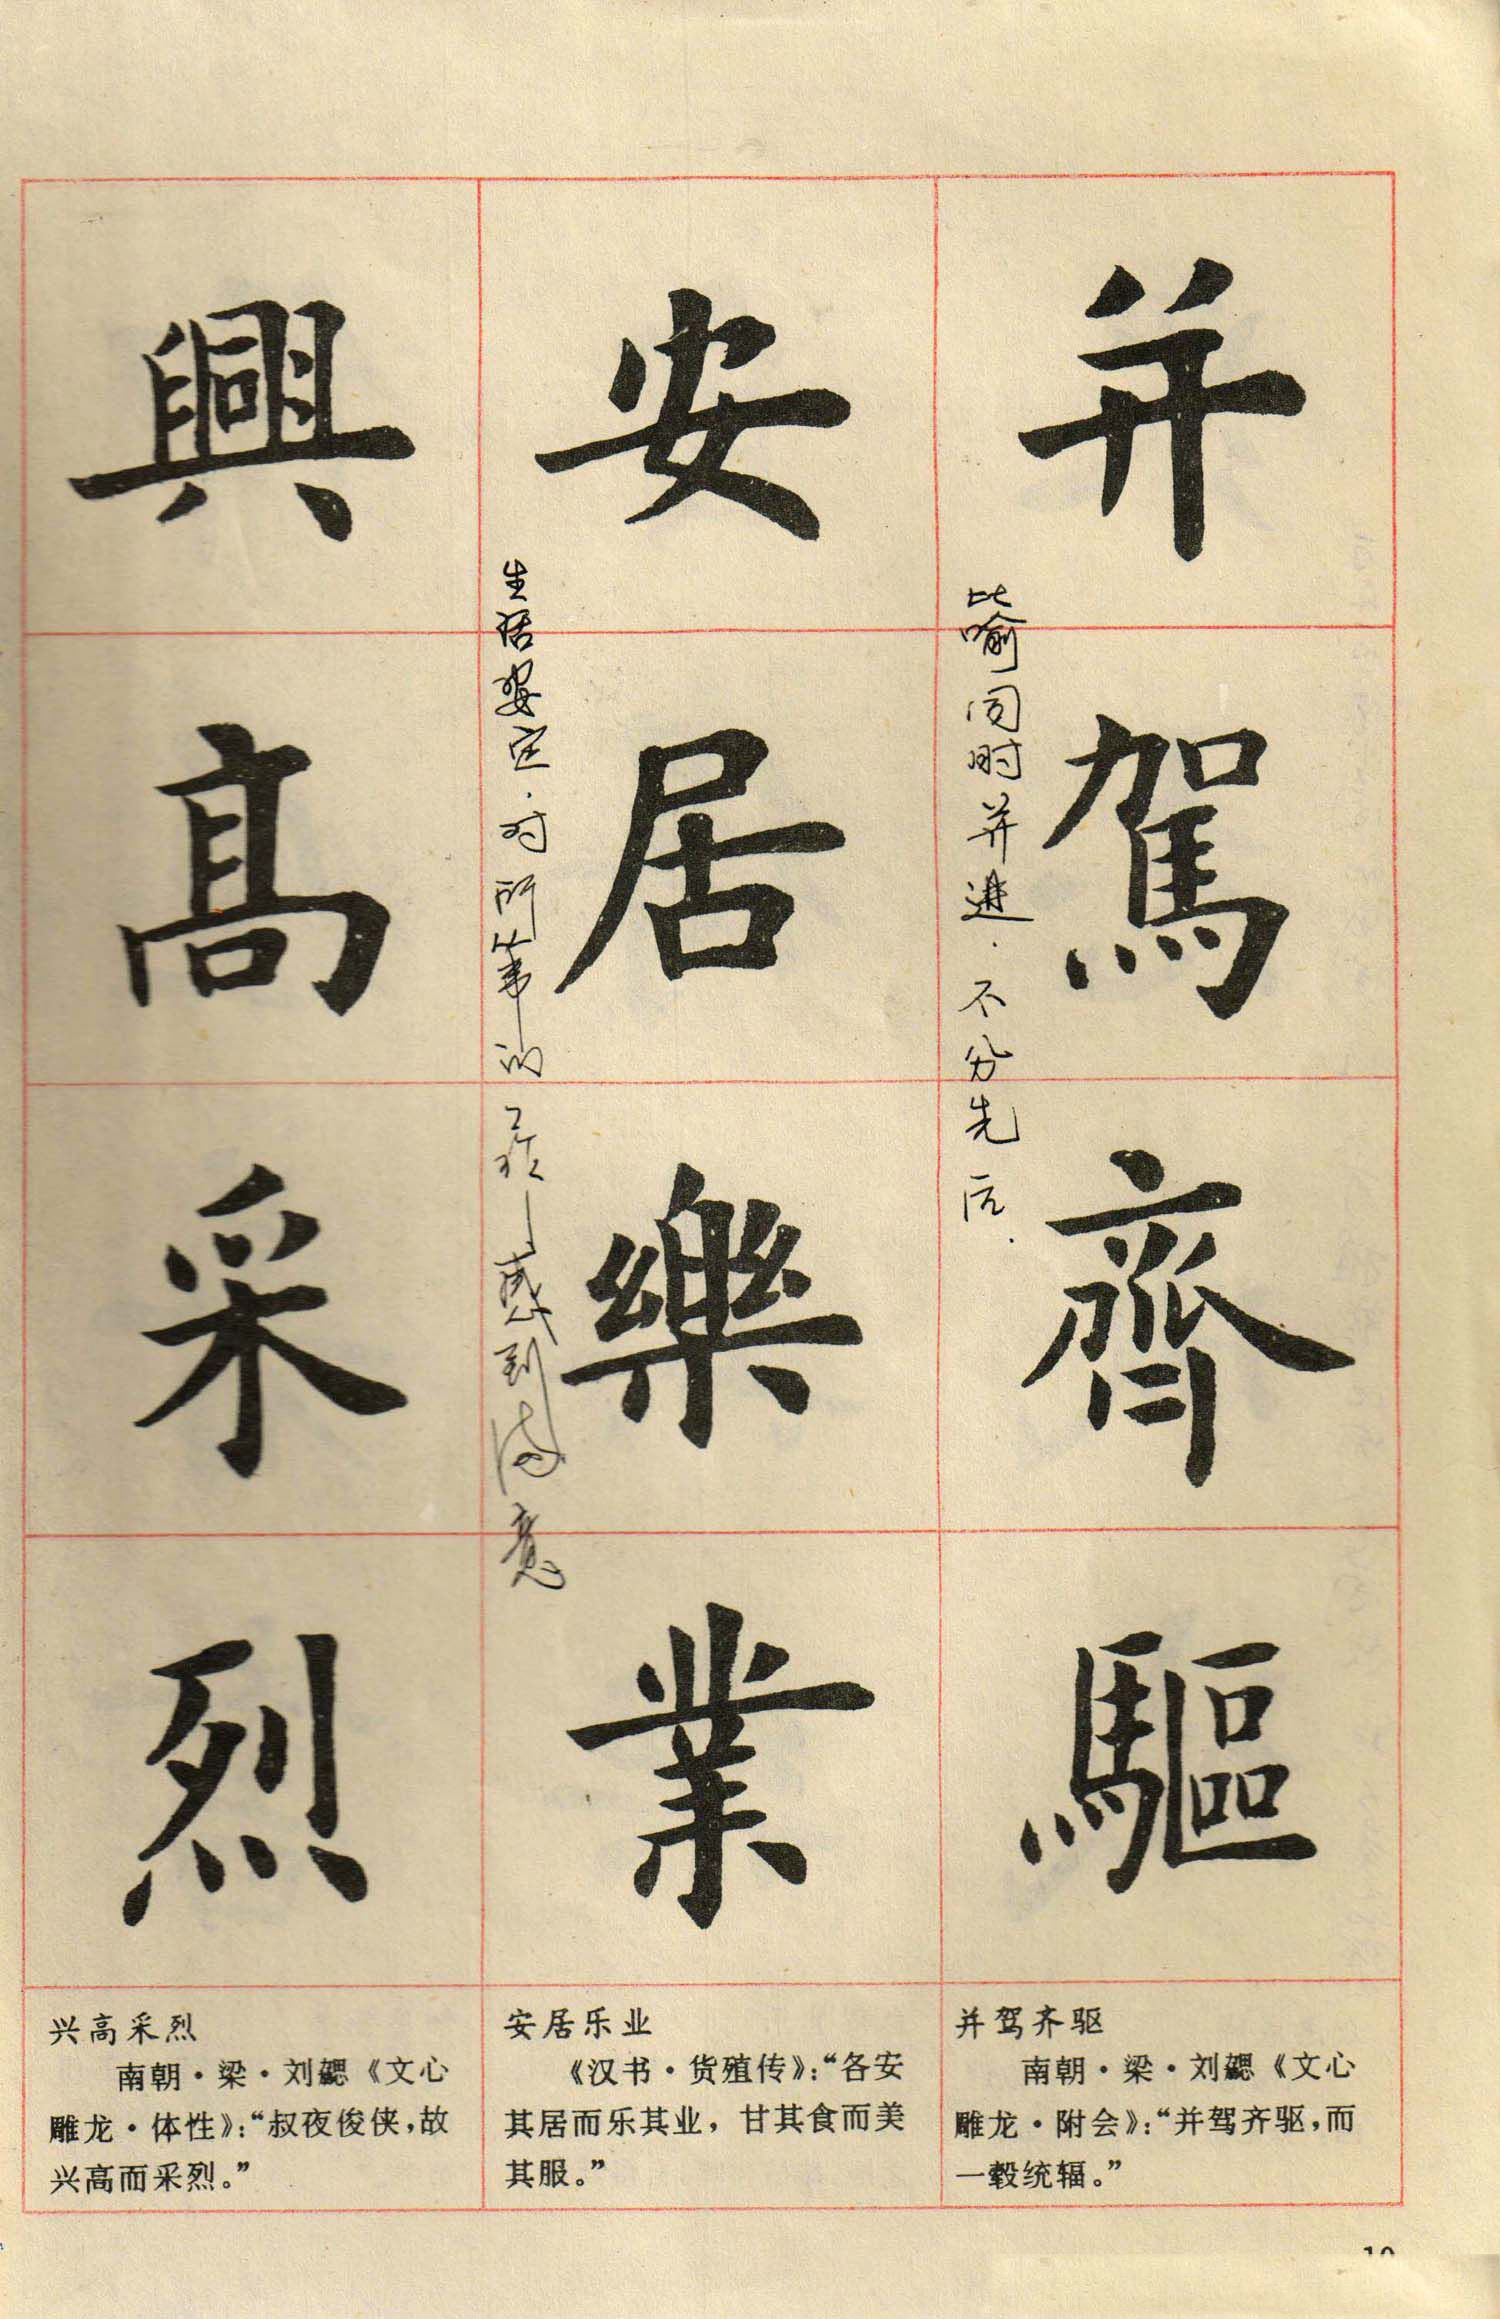 并駕齊驅
比喻同时并进.不分先后.
安居樂業
生活安定.对所从事的工作感到满意
興高采烈
并驾齐驱
南朝·梁·刘勰《文心
雕龙·附会》：“并驾齐驱，而
一毂统辐。”
安居乐业
《汉书·货殖传》：“各安
其居而乐其业，甘其食而美
其服。”
兴高采烈
南朝·梁·刘勰《文心
雕龙·体性》：“叔夜俊侠，故
兴高而采烈。”